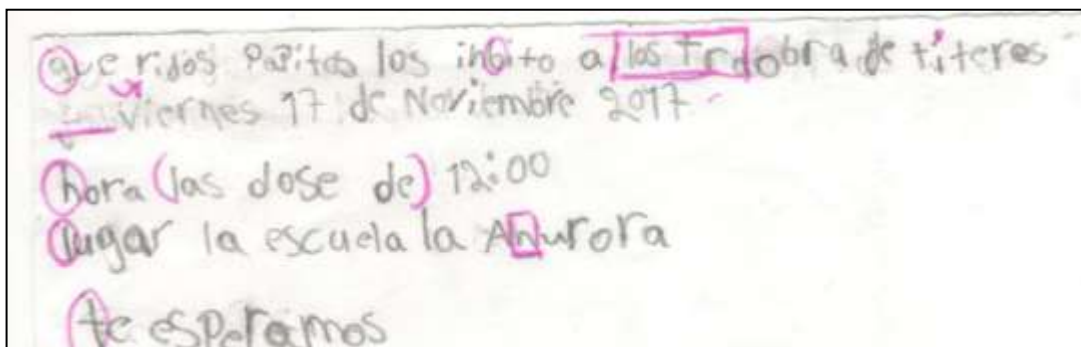 queridos Papitos los inbito a los tr la obra de titeres
viernes 17 de Noviembre 2017
hora (las dose de) 12:00
lugar la escuela la Anurora
te esperamos